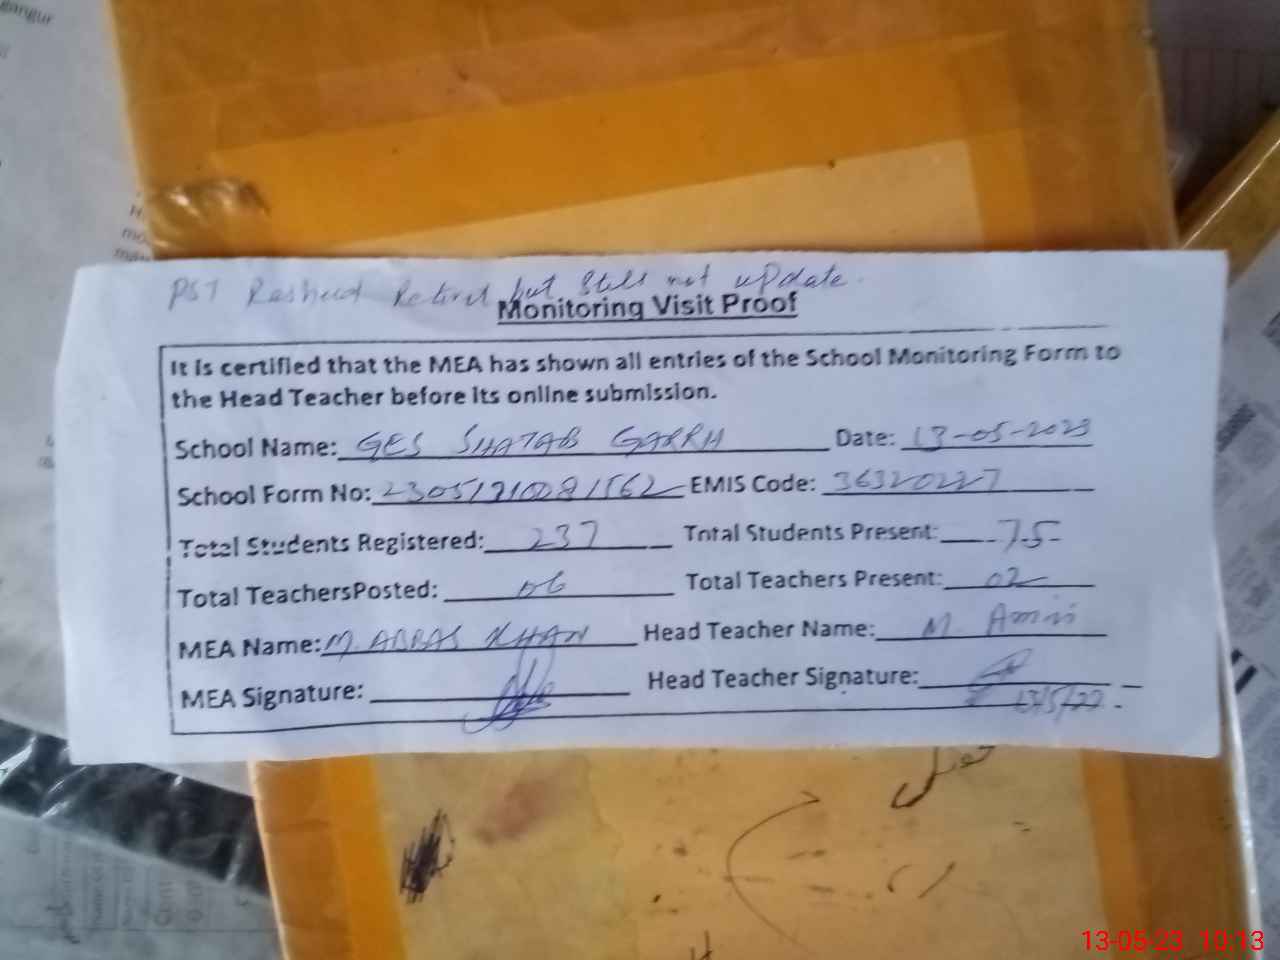 gangur
PST Rasheed Retired but still not update.
Monitoring Visit Proof
It is certified that the MEA has shown all entries of the School Monitoring Form to
the Head Teacher before its online submission.
School Name: GES SHATAB GARRH Date: 13-05-2023
School Form No: EMIS Code: 36320227
Total Students Registered: 237 Total Students Present: 75
Total TeachersPosted: 06 Total Teachers Present: 02
MEA Name: M. ABBAS KHAN Head Teacher Name: M. Amin
MEA Signature: Head Teacher Signature:
13-05-23 10:13